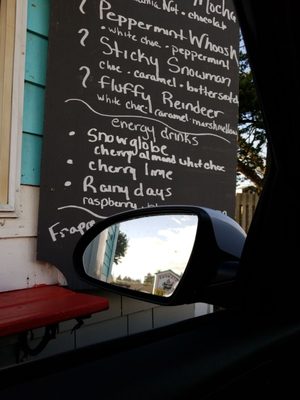 Mocha
Nut • chocolate
Peppermint Whoosh
• white choc • peppermint
Sticky Snowman
choc • caramel • butterscotch
fluffy Reindeer
white choc • caramel • marshmallow
energy drinks
• Snowglobe
cherry almond white choc
• cherry lime
• Rainy days
raspberry